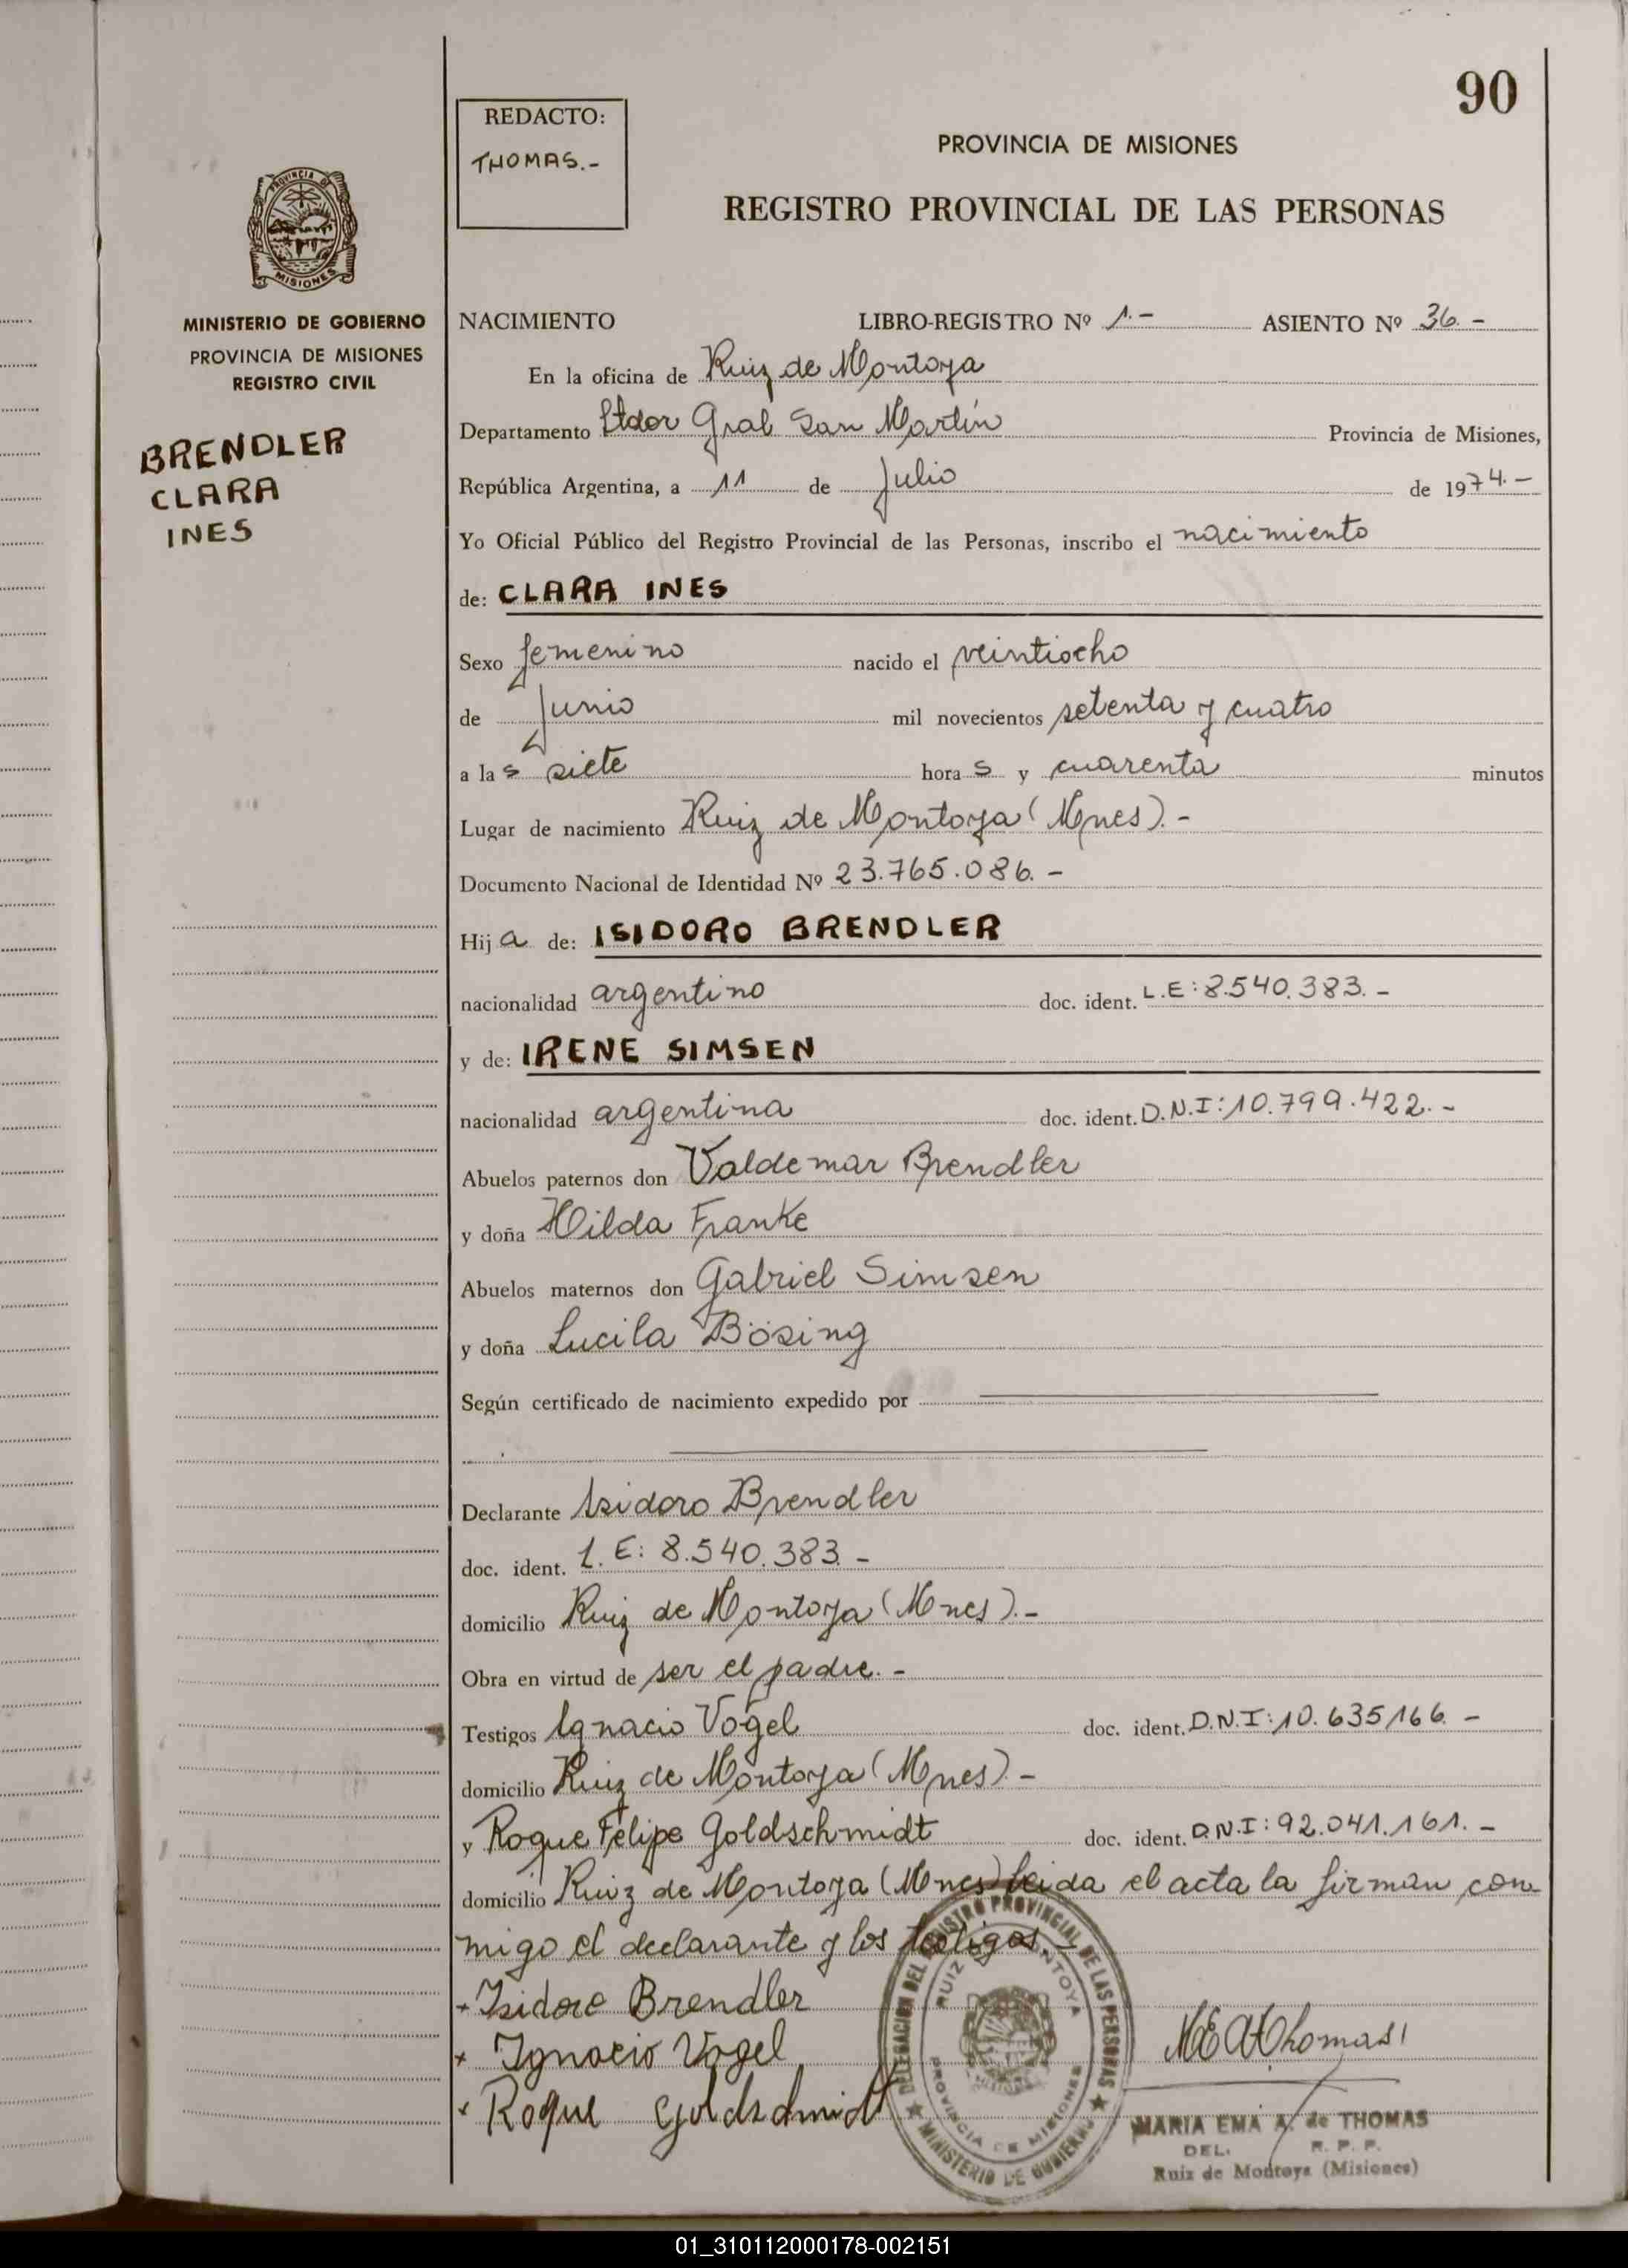 90
REDACTO:
THOMAS.-
PROVINCIA DE MISIONES
REGISTRO PROVINCIAL DE LAS PERSONAS
PROVINCIA DE
MISIONES
MINISTERIO DE GOBIERNO
PROVINCIA DE MISIONES
REGISTRO CIVIL
BRENDLER
CLARA
INES
NACIMIENTO LIBRO-REGISTRO Nº 1.- ASIENTO Nº 36.-
En la oficina de Ruiz de Montoya
Departamento Ltdor Gral San Martín Provincia de Misiones,
República Argentina, a 11 de Julio de 1974.-
Yo Oficial Público del Registro Provincial de las Personas, inscribo el nacimiento
de: CLARA INES
Sexo femenino nacido el veintiocho
de Junio mil novecientos setenta y cuatro
a las siete horas y cuarenta minutos
Lugar de nacimiento Ruiz de Montoya (Mnes).-
Documento Nacional de Identidad Nº 23.765.086.-
Hija de: ISIDORO BRENDLER
nacionalidad argentino doc. ident. L.E:8.540.383.-
y de: IRENE SIMSEN
nacionalidad argentina doc. ident. D.N.I:10.799.422.-
Abuelos paternos don Valdemar Brendler
y doña Hilda Franke
Abuelos maternos don Gabriel Simsen
y doña Lucila Bösing
Según certificado de nacimiento expedido por
Declarante Isidoro Brendler
doc. ident. L.E: 8.540.383.-
domicilio Ruiz de Montoya (Mnes).-
Obra en virtud de ser el padre.-
Testigos Ignacio Vogel doc. ident. D.N.I:10.635.166.-
domicilio Ruiz de Montoya (Mnes).-
y Roque Felipe Goldschmidt doc. ident. D.N.I:92.041.161.-
domicilio Ruiz de Montoya (Mnes) leida el acta la firman con-
migo el declarante y los testigos.-
+ Isidoro Brendler
+ Ignacio Vogel
+ Roque Goldschmidt
DELEGACION DEL REGISTRO PROVINCIAL DE LAS PERSONAS
RUIZ DE MONTOYA
PROVINCIA DE MISIONES
MINISTERIO DE GOBIERNO
MEAThomas
MARIA EMA A. de THOMAS
DEL. R. P. P.
Ruiz de Montoya (Misiones)
01_310112000178-002151